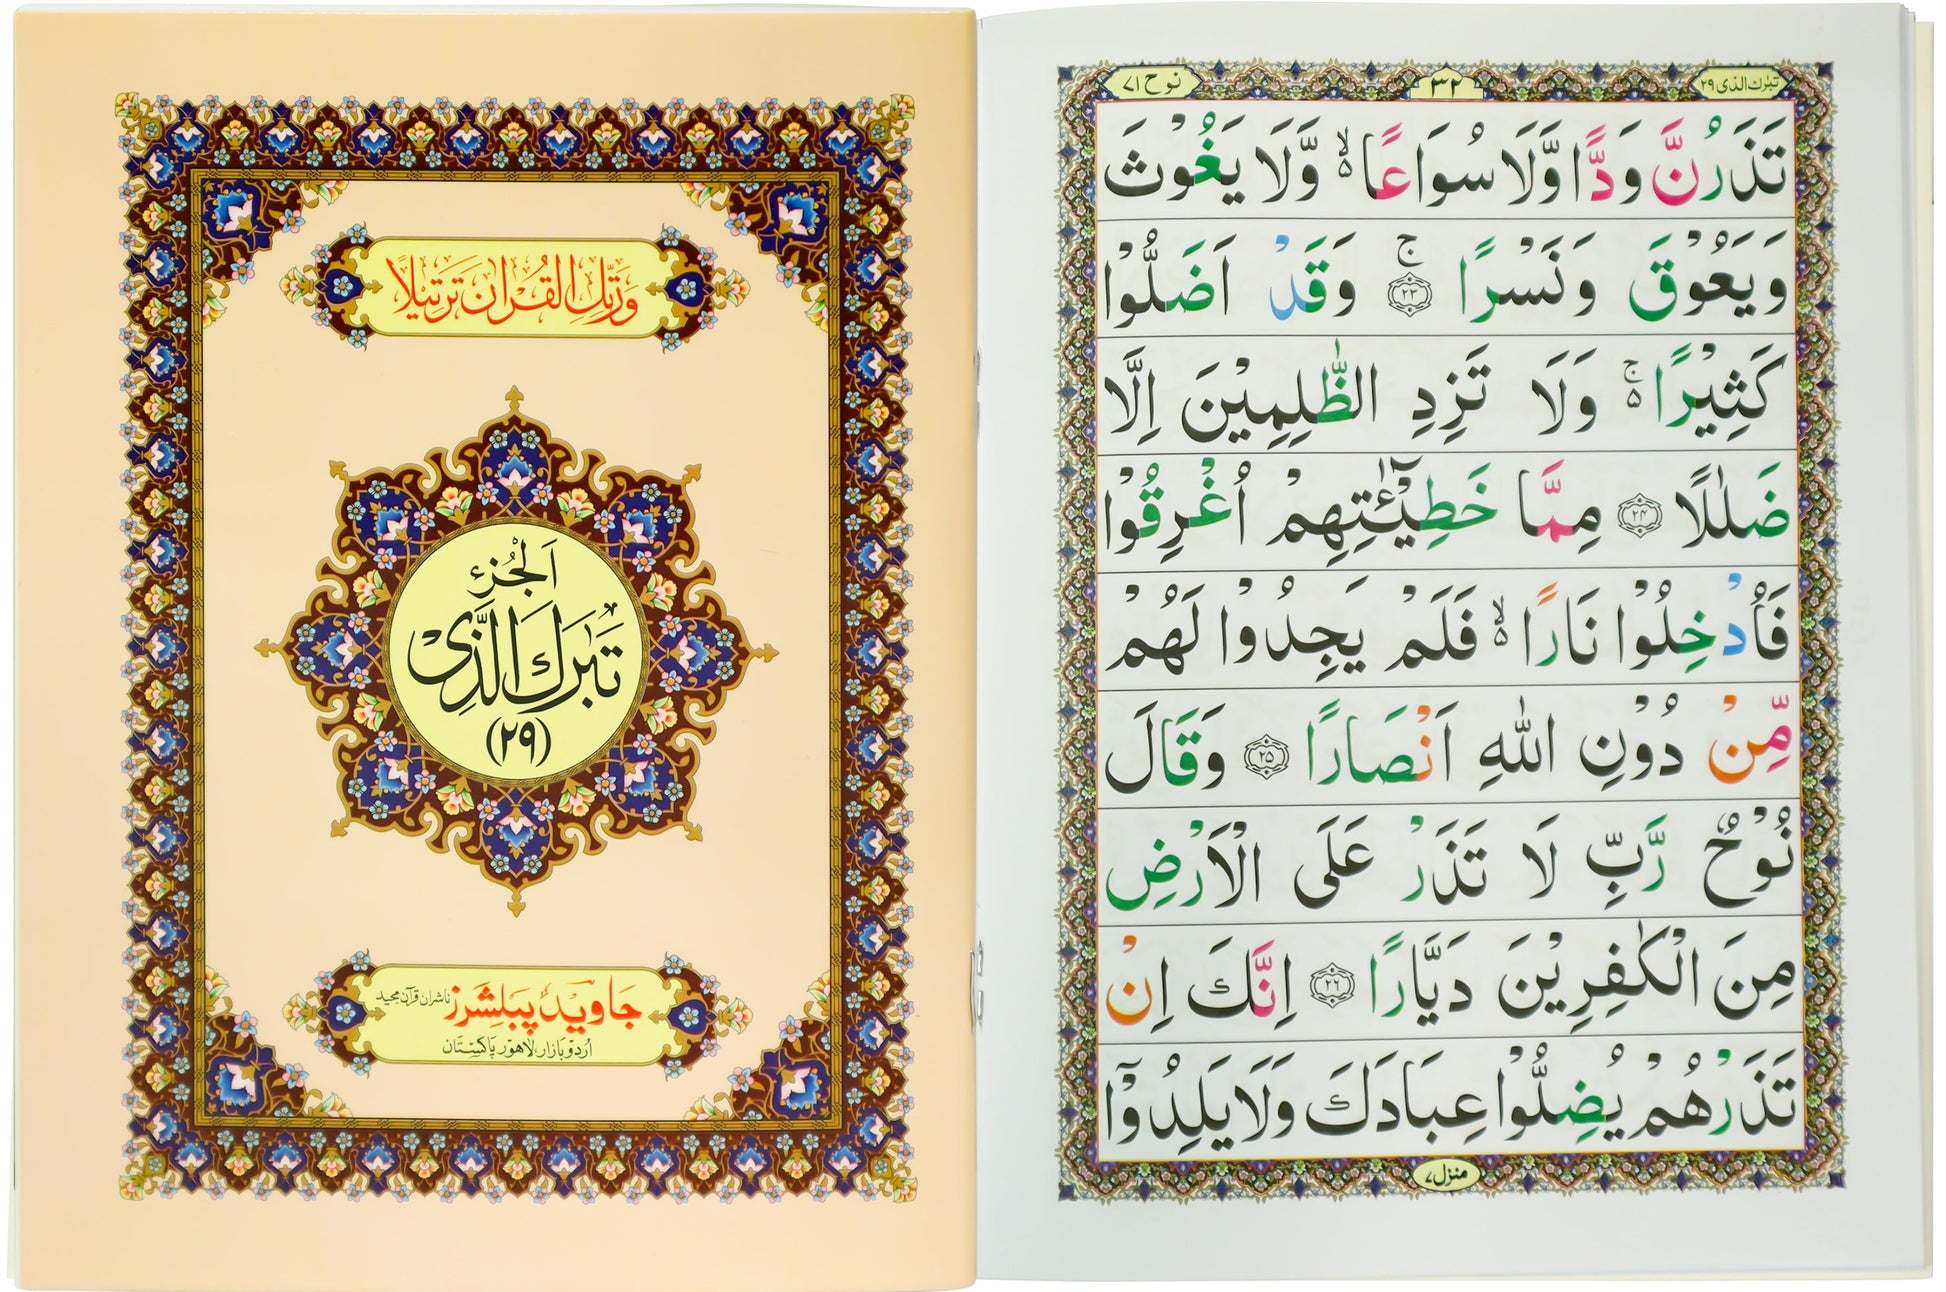 وَرَتِّلِ الْقُرْاٰنَ تَرْتِيْلًا
اَلْجُزْءُ
تَبٰرَكَ الَّذِىْ
(٢٩)
جاوید پبلشرز ناشران قرآن مجید
اُردو بازار، لاہور پاکستان
تبٰرك الذی ٢٩
٣٢
نوح ٧١
تَذَرُنَّ وَدًّا وَّلَا سُوَاعًا ۙ۬ وَّلَا يَغُوْثَ
وَيَعُوْقَ وَنَسْرًا ۚ ﴿٢٣﴾ وَقَدْ اَضَلُّوْا
كَثِيْرًا ۬ۚ وَلَا تَزِدِ الظّٰلِمِيْنَ اِلَّا
ضَلٰلًا ﴿٢٤﴾ مِمَّا خَطِيْٓـٰٔتِهِمْ اُغْرِقُوْا
فَاُدْخِلُوْا نَارًا ۙ۬ فَلَمْ يَجِدُوْا لَهُمْ
مِّنْ دُوْنِ اللّٰهِ اَنْصَارًا ﴿٢٥﴾ وَقَالَ
نُوْحٌ رَّبِّ لَا تَذَرْ عَلَى الْاَرْضِ
مِنَ الْكٰفِرِيْنَ دَيَّارًا ﴿٢٦﴾ اِنَّكَ اِنْ
تَذَرْهُمْ يُضِلُّوْا عِبَادَكَ وَلَا يَلِدُوْٓا
منزل ٧